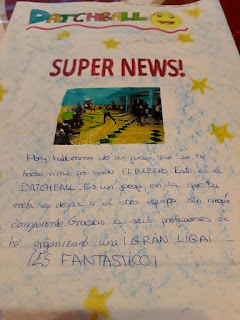 DATCHBALL
SUPER NEWS!
Hoy hablamos de un juego que se ha
hecho viral por todo EL ALBERO. Este es el
DATCHBALL. Es un juego en la que tu
meta es dejar a el otro equipo sin ningún
componente. Gracias a seis profesores se
ha organizado una ¡GRAN LIGA!
¡ES FANTÁSTICO!